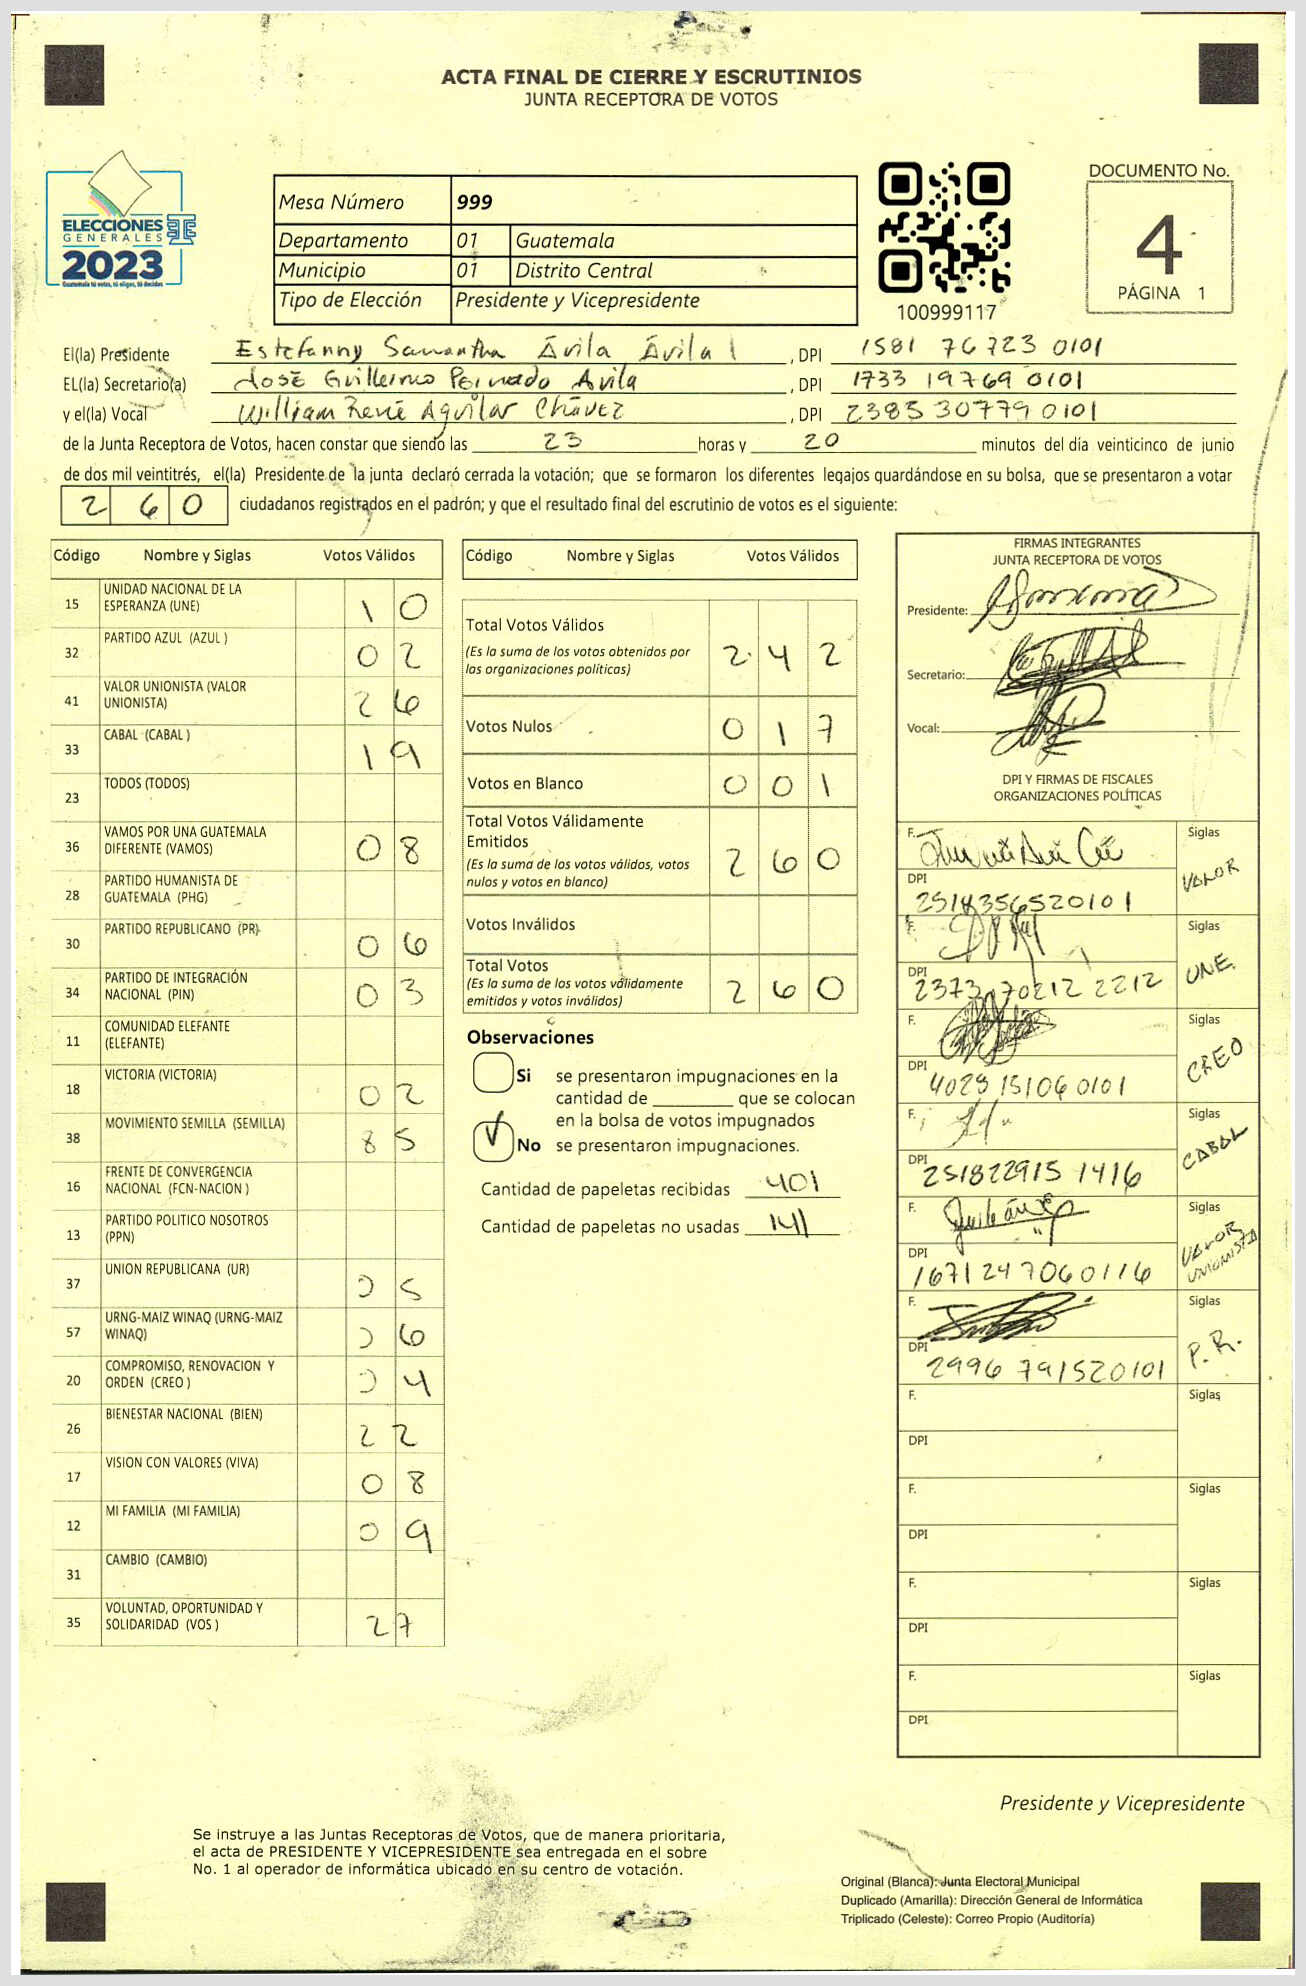 ACTA FINAL DE CIERRE Y ESCRUTINIOS
JUNTA RECEPTORA DE VOTOS
ELECCIONES
GENERALES
2023
Guatemala tú votas, tú eliges, tú decides
Mesa Número 999
Departamento 01 Guatemala
Municipio 01 Distrito Central
Tipo de Elección Presidente y Vicepresidente
100999117
DOCUMENTO No.
4
PÁGINA 1
El(la) Presidente Estefanny Samantha Ávila Ávila , DPI 1581 76723 0101
EL(la) Secretario(a) José Guillermo Peinado Avila , DPI 1733 19769 0101
y el(la) Vocal William René Aguilar Chávez , DPI 2385 30779 0101
de la Junta Receptora de Votos, hacen constar que siendo las 23 horas y 20 minutos del día veinticinco de junio
de dos mil veintitrés, el(la) Presidente de la junta declaró cerrada la votación; que se formaron los diferentes legajos guardándose en su bolsa, que se presentaron a votar
260 ciudadanos registrados en el padrón; y que el resultado final del escrutinio de votos es el siguiente:
Código Nombre y Siglas Votos Válidos
15 UNIDAD NACIONAL DE LA ESPERANZA (UNE) 10
32 PARTIDO AZUL (AZUL ) 02
41 VALOR UNIONISTA (VALOR UNIONISTA) 26
33 CABAL (CABAL ) 19
23 TODOS (TODOS)
36 VAMOS POR UNA GUATEMALA DIFERENTE (VAMOS) 08
28 PARTIDO HUMANISTA DE GUATEMALA (PHG)
30 PARTIDO REPUBLICANO (PR) 06
34 PARTIDO DE INTEGRACIÓN NACIONAL (PIN) 03
11 COMUNIDAD ELEFANTE (ELEFANTE)
18 VICTORIA (VICTORIA) 02
38 MOVIMIENTO SEMILLA (SEMILLA) 85
16 FRENTE DE CONVERGENCIA NACIONAL (FCN-NACION )
13 PARTIDO POLITICO NOSOTROS (PPN)
37 UNION REPUBLICANA (UR) 05
57 URNG-MAIZ WINAQ (URNG-MAIZ WINAQ) 06
20 COMPROMISO, RENOVACION Y ORDEN (CREO ) 04
26 BIENESTAR NACIONAL (BIEN) 22
17 VISION CON VALORES (VIVA) 08
12 MI FAMILIA (MI FAMILIA) 09
31 CAMBIO (CAMBIO)
35 VOLUNTAD, OPORTUNIDAD Y SOLIDARIDAD (VOS ) 27
Código Nombre y Siglas Votos Válidos
Total Votos Válidos 242
(Es la suma de los votos obtenidos por
las organizaciones políticas)
Votos Nulos 017
Votos en Blanco 001
Total Votos Válidamente
Emitidos 260
(Es la suma de los votos válidos, votos
nulos y votos en blanco)
Votos Inválidos
Total Votos 260
(Es la suma de los votos válidamente
emitidos y votos inválidos)
Observaciones
Si se presentaron impugnaciones en la
cantidad de ________ que se colocan
en la bolsa de votos impugnados
✓ No se presentaron impugnaciones.
Cantidad de papeletas recibidas 401
Cantidad de papeletas no usadas 141
FIRMAS INTEGRANTES
JUNTA RECEPTORA DE VOTOS
Presidente:
Secretario:
Vocal:
DPI Y FIRMAS DE FISCALES
ORGANIZACIONES POLÍTICAS
F. Siglas VALOR
DPI 2518356520101
F. Siglas UNE
DPI 2373 70212 2212
F. Siglas CREO
DPI 4029 15106 0101
F. Siglas CABAL
DPI 251822915 1416
F. Siglas VALOR UNIONISTA
DPI 1671247060116
F. Siglas P.R.
DPI 2996 791520101
F. Siglas
DPI
F. Siglas
DPI
F. Siglas
DPI
F. Siglas
DPI
Presidente y Vicepresidente
Se instruye a las Juntas Receptoras de Votos, que de manera prioritaria,
el acta de PRESIDENTE Y VICEPRESIDENTE sea entregada en el sobre
No. 1 al operador de informática ubicado en su centro de votación.
Original (Blanca): Junta Electoral Municipal
Duplicado (Amarilla): Dirección General de Informática
Triplicado (Celeste): Correo Propio (Auditoría)